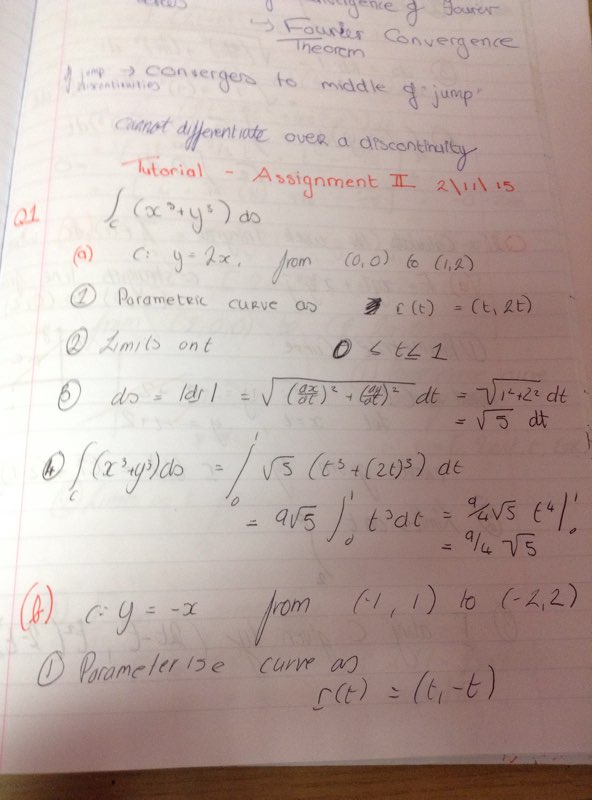 convergence of Fourier
→ Fourier Convergence
Theorem
of jump discontinuities → convergers to middle of "jump"
cannot differentiate over a discontinuity
Tutorial - Assignment II 2\11\15
Q1 ∫c (x³+y³) ds
(a) C: y = 2x, from (0,0) to (1,2)
① Parametric curve as r(t) = (t, 2t)
② Limits on t 0 ≤ t ≤ 1
③ ds = |dr| = √((dx/dt)² + (dy/dt)²) dt = √(1²+2²) dt
= √5 dt
④ ∫c (x³+y³) ds = ∫₀¹ √5 (t³ + (2t)³) dt
= 9√5 ∫₀¹ t³ dt = 9/4 √5 t⁴ |₀¹
= 9/4 √5
(b) C: y = -x from (-1, 1) to (-2, 2)
① Parameterise curve as
r(t) = (t, -t)